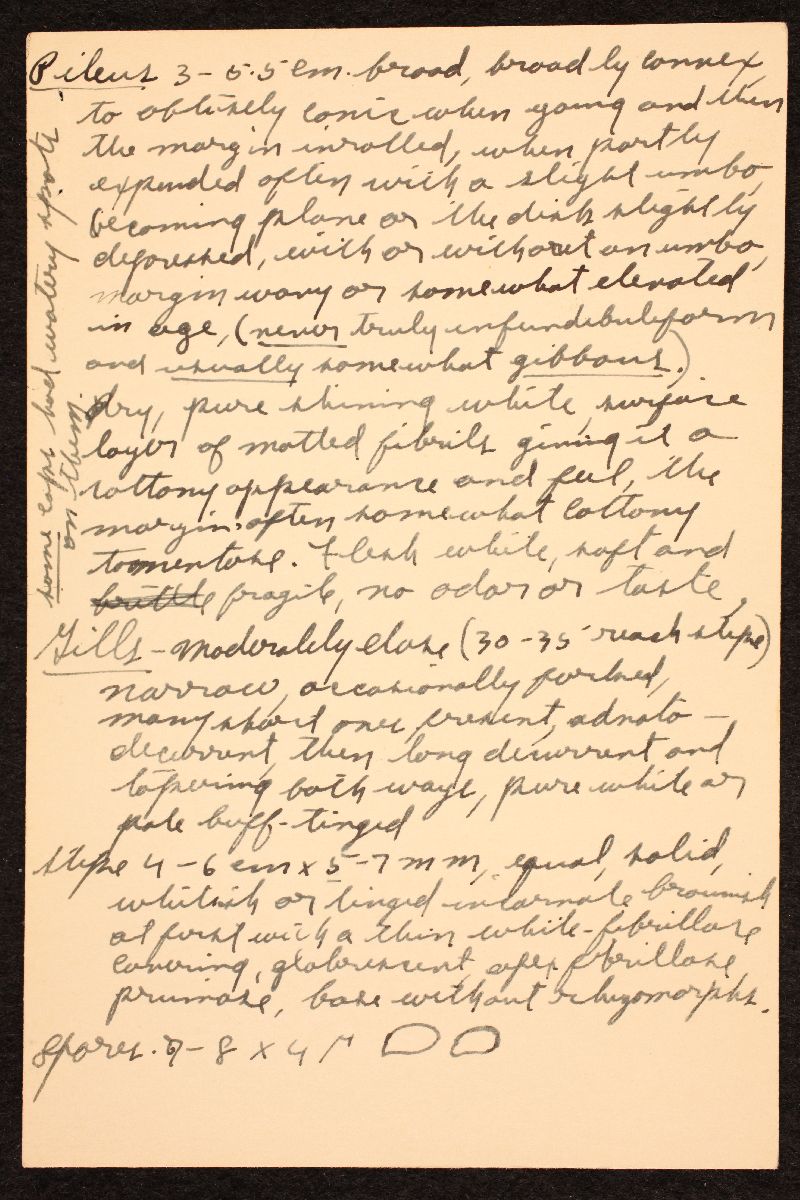 Pileus 3-5.5 cm. broad, broadly convex
to obtusely conic when young and then
the margin inrolled, when partly
expanded often with a slight umbo,
becoming plane or the disk slightly
depressed, with or without an umbo,
margin wavy or somewhat elevated
in age, (never truly infundibuliform
and usually somewhat gibbous.)
dry, pure shining white, surface
layer of matted fibrils giving it a
cottony appearance and feel, the
margin often somewhat cottony
tomentose. Flesh white, soft and
brittle fragile, no odor or taste,
Gills - moderately close (30-35 reach stipe)
narrow, occasionally forked,
many short ones present, adnato-
decurrent, then long decurrent and
tapering both ways, pure white or
pale buff-tinged
stipe 4-6 cm x 5-7 mm, equal, solid,
whitish or tinged incarnate brownish
at first with a thin white-fibrillose
covering, glabrescent, apex fibrillose
pruinose, base without rhizomorphs.
Spores. 7-8 x 4 μ
some caps had watery spots
on them.